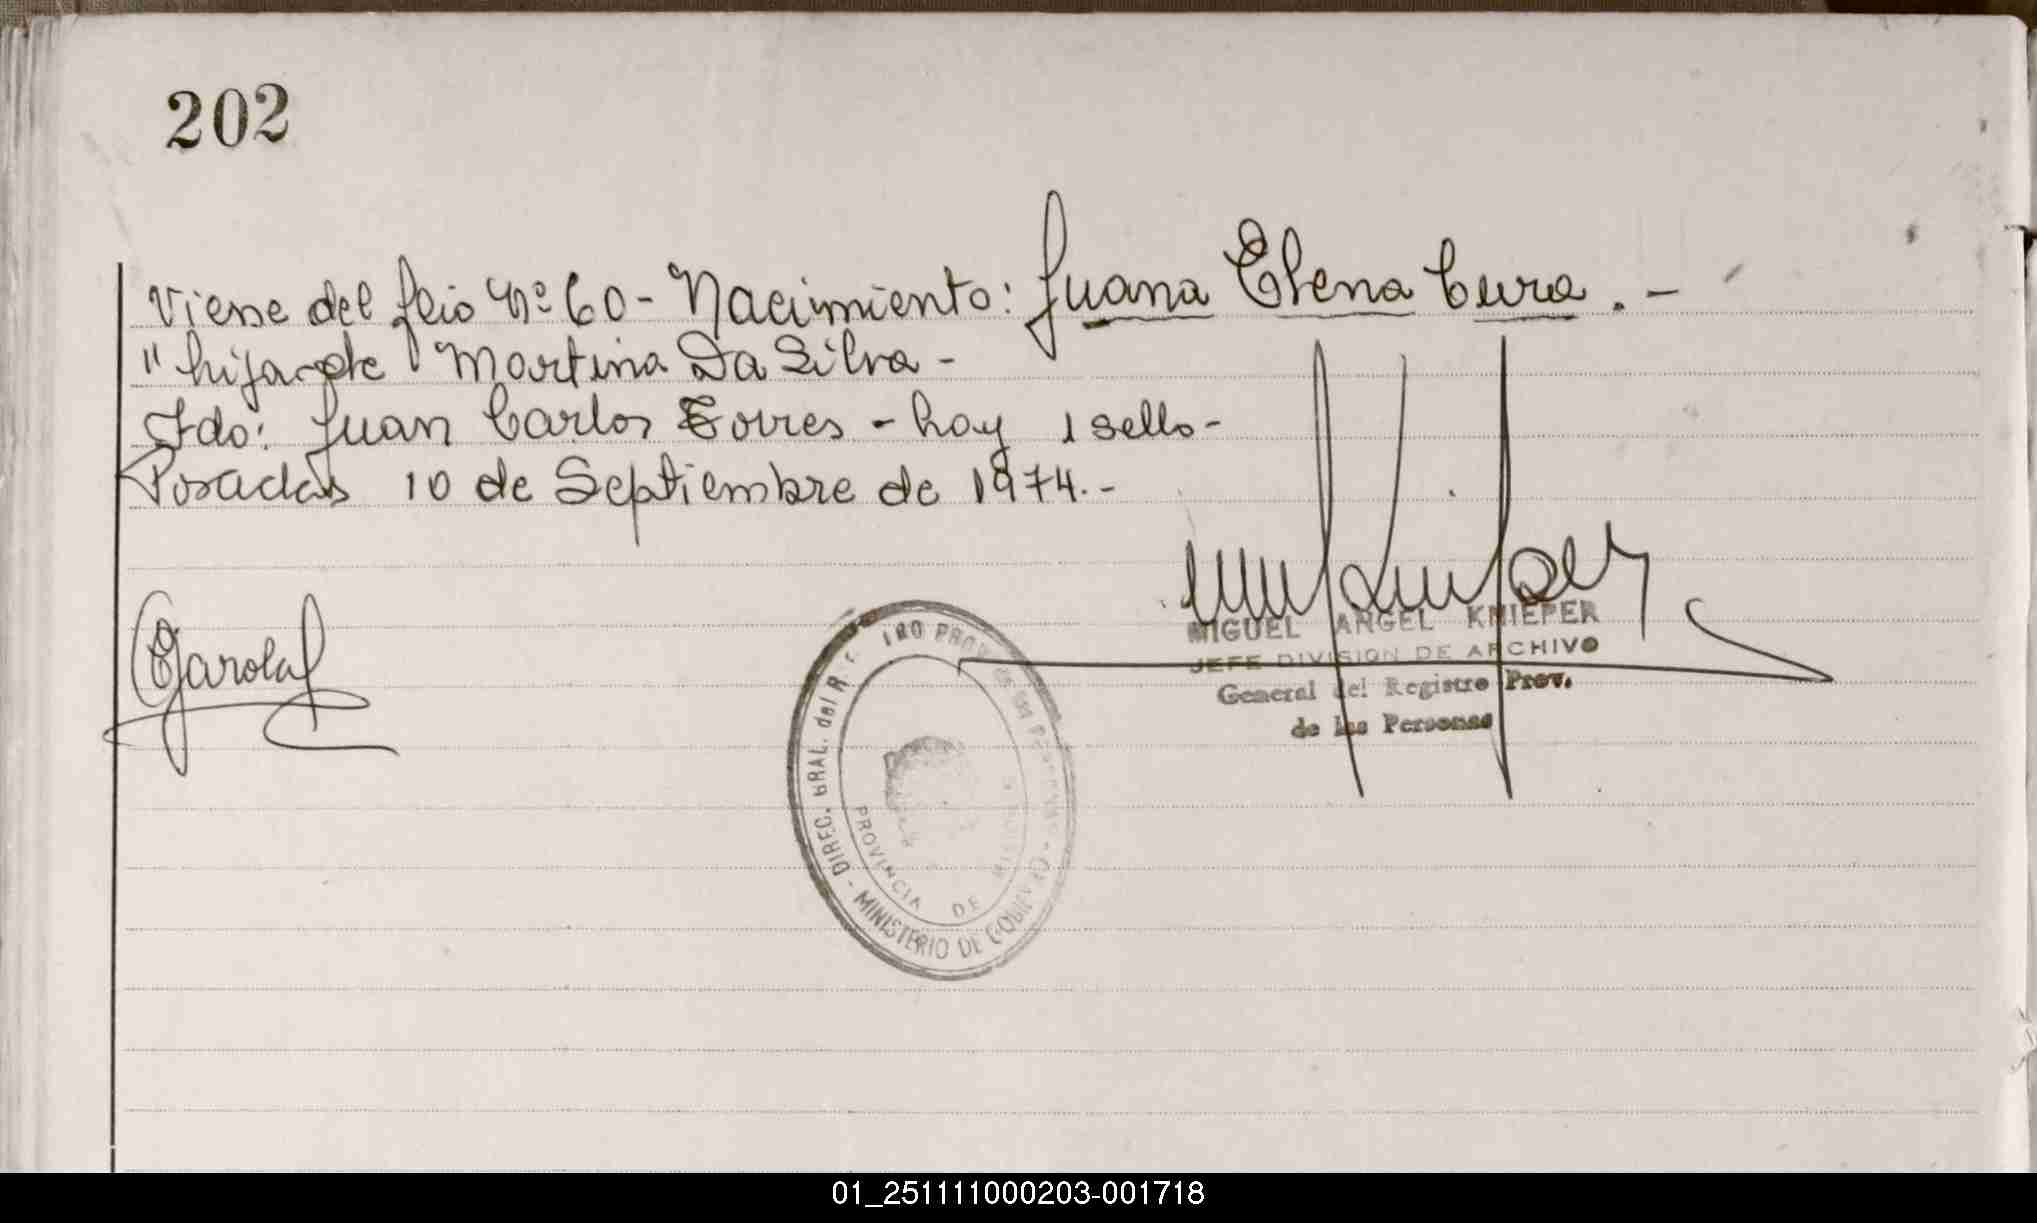 202
Viene del folio Nº 60 - Nacimiento: Juana Elena Cura . -
" hija de Martina Da Silva -
Fdo: Juan Carlos Torres - hay 1 sello -
Posadas 10 de Septiembre de 1974. -
MIGUEL ANGEL KNIEPER
JEFE DIVISION DE ARCHIVO
General del Registro Prov.
de las Personas
DIREC. GRAL. del R PROV
MINISTERIO DE GOBIERNO
PROVINCIA DE MISIONES
01_251111000203-001718